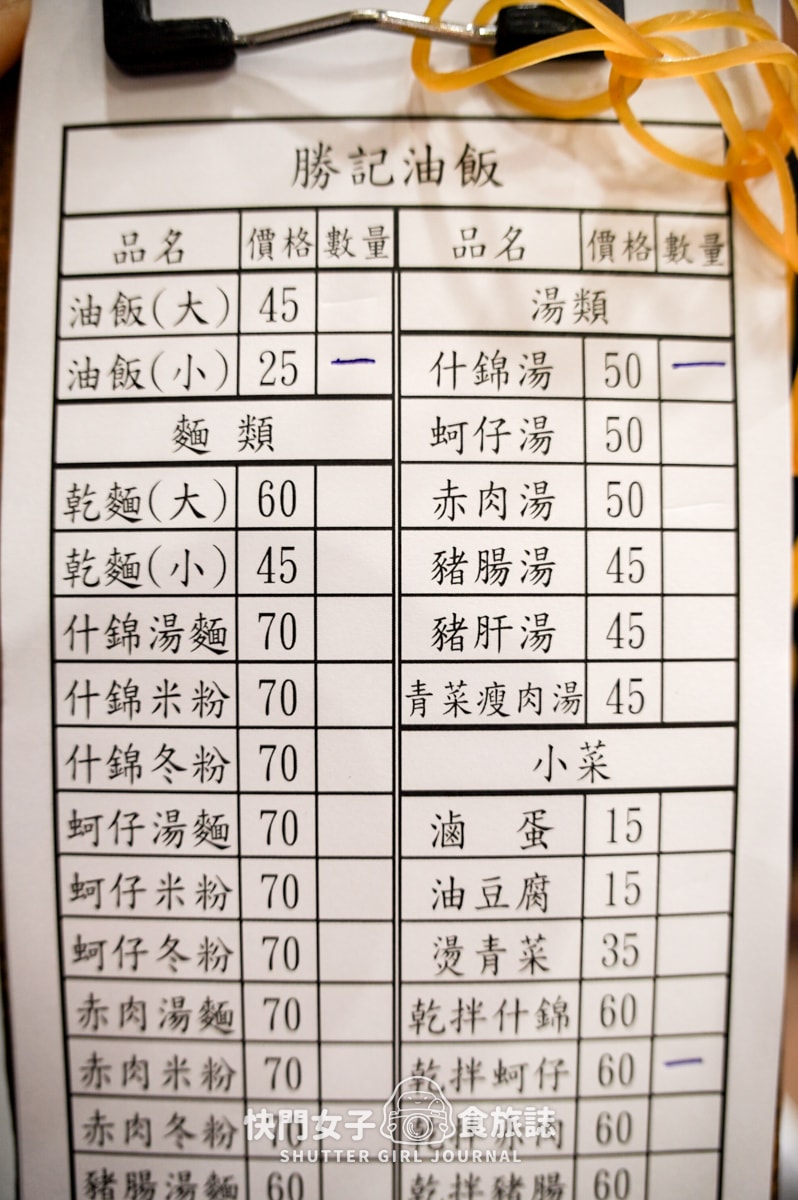 勝記油飯
品名 價格 數量 品名 價格 數量
油飯(大) 45 湯類
油飯(小) 25 一 什錦湯 50 一
麵 類 蚵仔湯 50
乾麵(大) 60 赤肉湯 50
乾麵(小) 45 豬腸湯 45
什錦湯麵 70 豬肝湯 45
什錦米粉 70 青菜瘦肉湯 45
什錦冬粉 70 小菜
蚵仔湯麵 70 滷 蛋 15
蚵仔米粉 70 油豆腐 15
蚵仔冬粉 70 燙青菜 35
赤肉湯麵 70 乾拌什錦 60
赤肉米粉 70 乾拌蚵仔 60 一
赤肉冬粉 70 肉 60
豬腸湯麵 60 乾拌豬腸 60
快門女子 食旅誌
SHUTTER GIRL JOURNAL